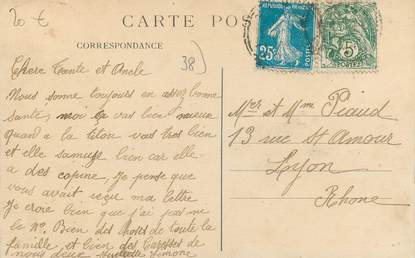 20 €
CARTE POS
CORRESPONDANCE
38)
Chere Tante et Oncle
Nous somme toujours en assez bonne
Santée moi ça vas bien mieux
quand a la vas tres bien
et elle samuse bien car elle
a des copine, Je pense que
vous avait reçu ma lettre
Je croie bien que j'ai pas me
le No. Bien des choses de toute la
famille et bien des Caresses de
nous deux Simone
REPUBLIQUE FRANCAISE
25c
POSTES
5c
Mer et Mme Piaud
13 rue St Amour
Lyon
Rhone